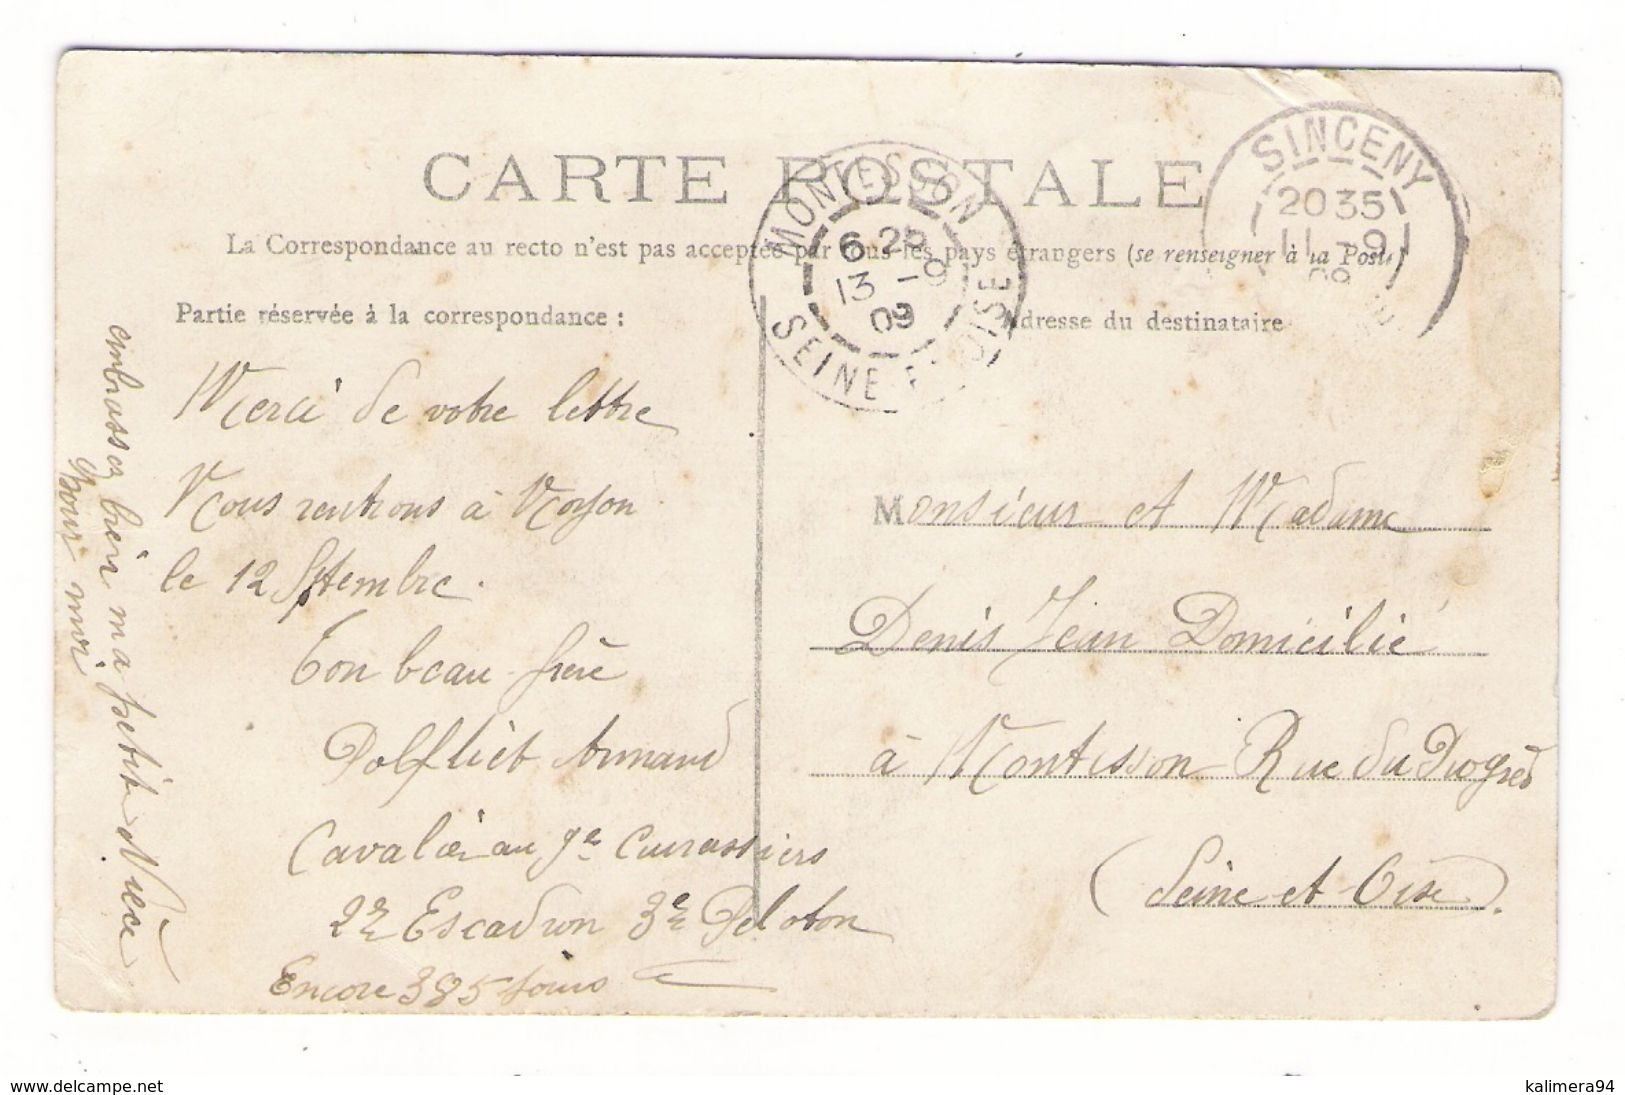 CARTE POSTALE
La Correspondance au recto n'est pas acceptée par tous les pays étrangers (se renseigner à la Poste)
Partie réservée à la correspondance :
Adresse du destinataire
MONTESSON
6 25
13 - 9
09
SEINE ET OISE
SINCENY
20 35
11 - 9
09
Merci de votre lettre
Nous rentrons à Noyon
le 12 Septembre.
Ton beau frère
Dolfliet Armand
Cavalier au 9e Cuirassiers
2e Escadron 3e Peloton
Encore 385 jours
embrasser bien ma petite Niece
pour moi
Monsieur et Madame
Denis Jean Domicilié
à Montesson Rue du Progrès
(Seine et Oise).
www.delcampe.net
kalimera94